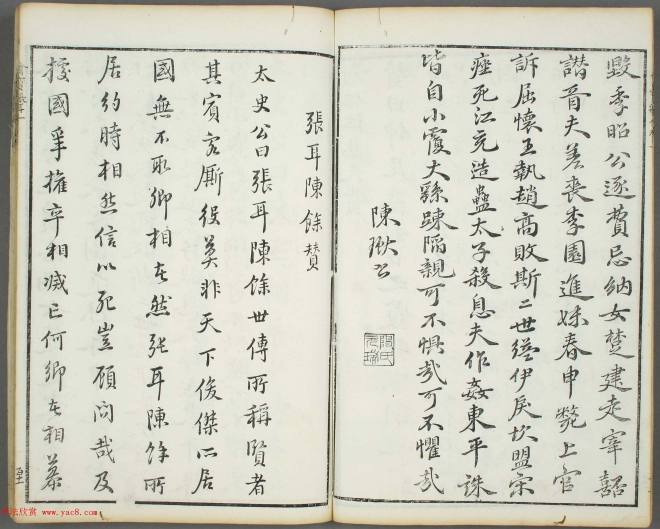 毀季昭公逐費忌納女楚建走宰嚭
譖胥夫差喪李園進妹春申斃上官
訴屈懷王執趙高敗斯二世縊伊戾坎盟宋
痤死江充造蠱太子殺息夫作姦東平誅
皆自小覆大繇踈陷親可不惧哉可不懼哉
陳公
張耳陳餘贊
太史公曰張耳陳餘世傳所稱賢者
其賓客厮役莫非天下俊傑所居
國無不取卿相者然張耳陳餘所
居約時相然信以死豈顧問哉及
據國爭權卒相滅亡何鄉者相慕
法欣赏 www.yac8.com